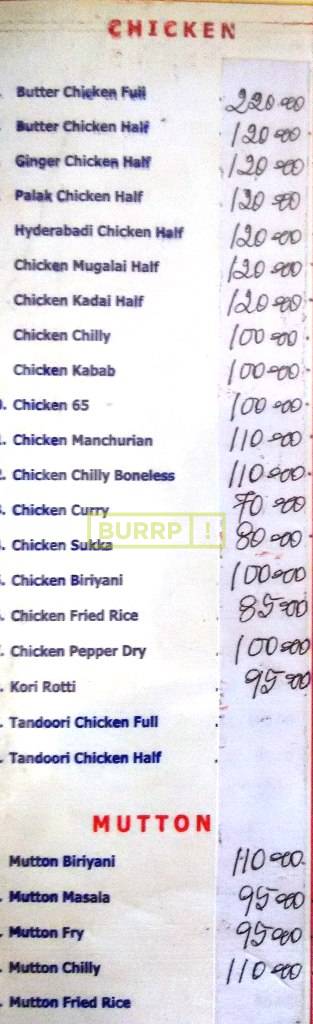 CHICKEN
Butter Chicken Full 220-00
Butter Chicken Half 120-00
Ginger Chicken Half 120-00
Palak Chicken Half 120-00
Hyderabadi Chicken Half 120-00
Chicken Mugalai Half 120-00
Chicken Kadai Half 120-00
Chicken Chilly 100-00
Chicken Kabab 100-00
0. Chicken 65 100-00
Chicken Manchurian 110-00
Chicken Chilly Boneless 110-00
Chicken Curry 70-00
BURRP!
Chicken Sukka 80-00
Chicken Biriyani 100-00
Chicken Fried Rice 85-00
Chicken Pepper Dry 100-00
Kori Rotti 95-00
Tandoori Chicken Full
Tandoori Chicken Half
MUTTON
Mutton Biriyani 110-00
Mutton Masala 95-00
Mutton Fry 95-00
Mutton Chilly 110-00
Mutton Fried Rice